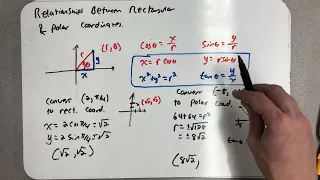 Relationships Between Rectangular
& Polar Coordinates.
(r, θ)
r
y
θ
x
cosθ = x/r
sinθ = y/r
x = r cosθ
y = r sinθ
x²+y² = r²
tanθ = y/x
Convert (2, π/4)
to rect. coord.
x = 2 cos π/4 = √2
y = 2 sin π/4 = √2
(√2, √2)
(√2, √2)
Convert (-8,
to Polar Coord.
64+64 = r²
r = ±√128
= ±8√2
(8√2,